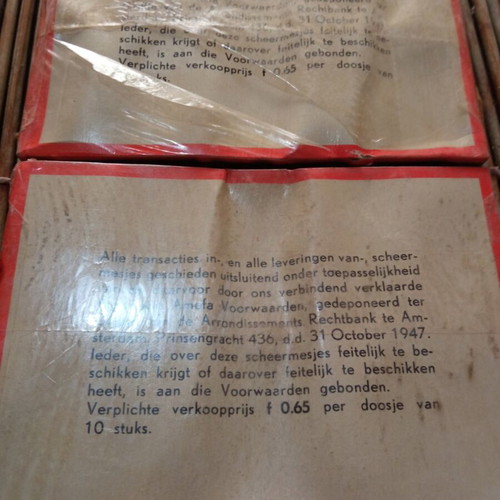 Rechtbank te
31 October
Ieder, die over deze scheermesjes feitelijk te
schikken krijgt of daarover feitelijk te beschikken
heeft, is aan die Voorwaarden gebonden.
Verplichte verkoopprijs f 0.65 per doosje van
ks.
Alle transacties in-, en alle leveringen van-, scheer-
mesjes geschieden uitsluitend onder toepasselijkheid
door ons verbindend verklaarde
Amefa Voorwaarden, gedeponeerd ter
de Arrondissements Rechtbank te Am-
sterdam, Prinsengracht 436, d.d. 31 October 1947.
Ieder, die over deze scheermesjes feitelijk te be-
schikken krijgt of daarover feitelijk te beschikken
heeft, is aan die Voorwaarden gebonden.
Verplichte verkoopprijs f 0.65 per doosje van
10 stuks.